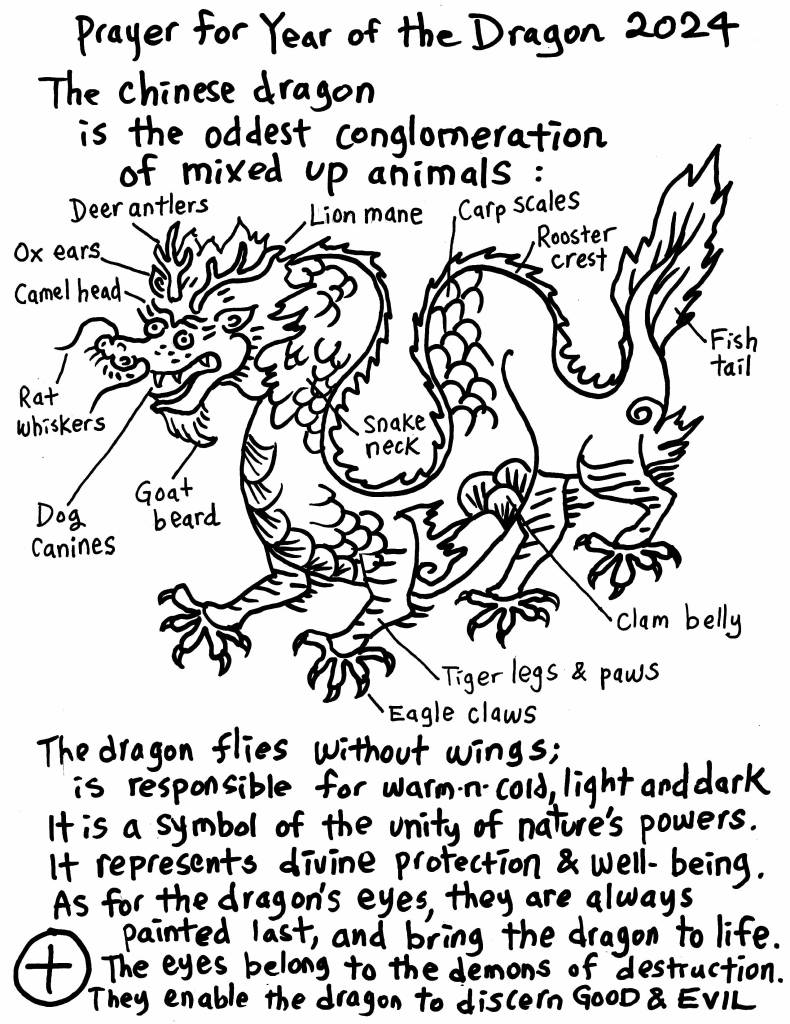 Prayer for Year of the Dragon 2024
The chinese dragon
is the oddest conglomeration
of mixed up animals :
Deer antlers
Lion mane
Carp scales
Ox ears
Rooster
crest
Camel head
Fish
tail
Rat
whiskers
Snake
neck
Goat
beard
Dog
Canines
Clam belly
Tiger legs & paws
Eagle claws
The dragon flies without wings;
is responsible for warm-n-cold, light and dark
It is a symbol of the unity of nature's powers.
It represents divine protection & well-being.
As for the dragon's eyes, they are always
painted last, and bring the dragon to life.
The eyes belong to the demons of destruction.
They enable the dragon to discern GOOD & EVIL